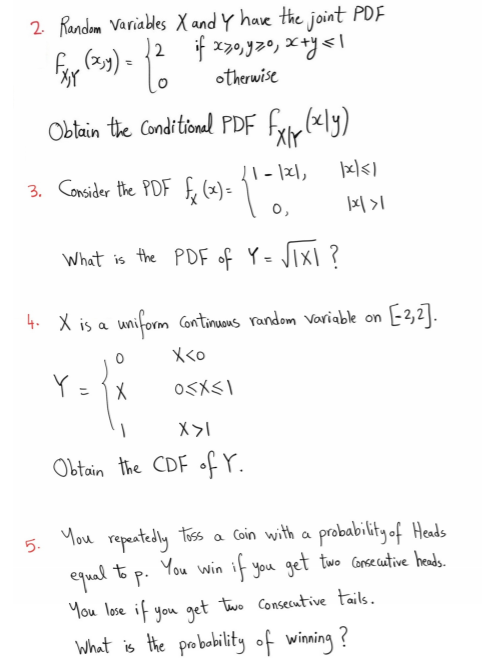 2. Random Variables X and Y have the joint PDF
f_{X,Y}(x,y) = { 2 if x≥0, y≥0, x+y≤1
0 otherwise
Obtain the Conditional PDF f_{X|Y}(x|y)
3. Consider the PDF f_X(x) = { 1-|x|, |x|≤1
0, |x|>1
What is the PDF of Y = √|X| ?
4. X is a uniform Continuous random variable on [-2,2].
0 X<0
Y = { X 0≤X≤1
1 X>1
Obtain the CDF of Y.
5. You repeatedly Toss a Coin with a probability of Heads
equal to p. You win if you get two Consecutive heads.
You lose if you get two Consecutive tails.
What is the probability of winning?